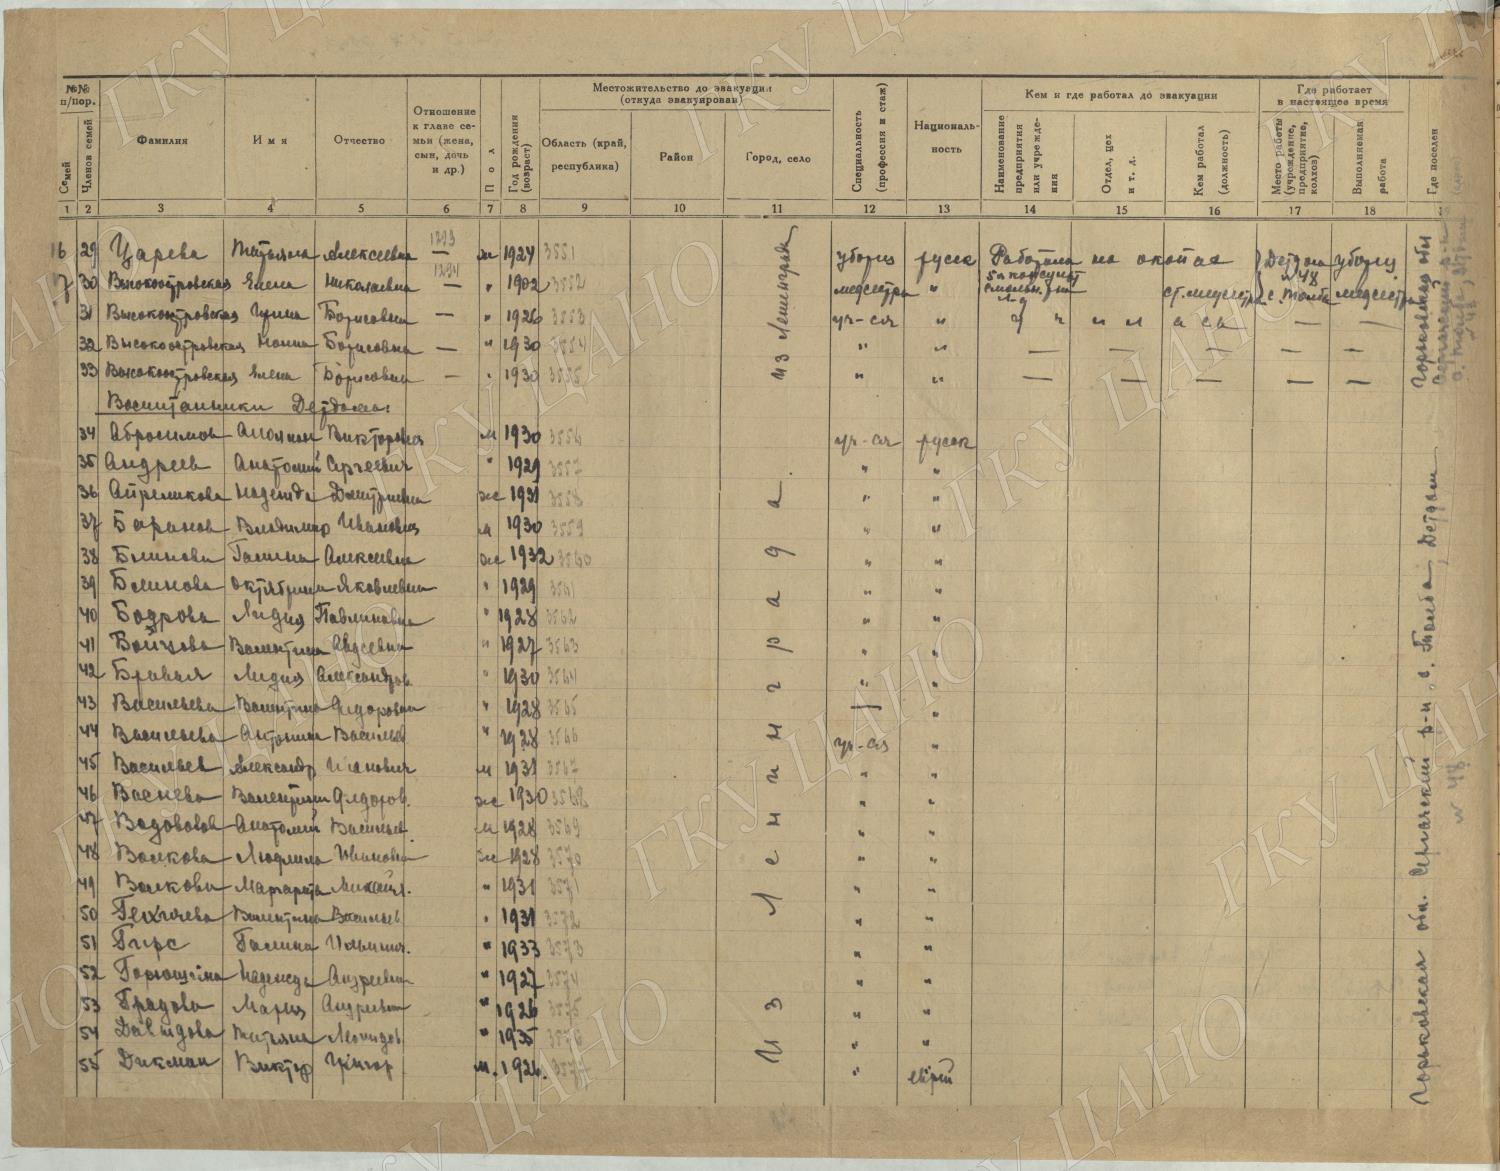 №№ п/пор.
Семей
Членов семей
Фамилия
Имя
Отчество
Отношение к главе семьи (жена, сын, дочь и др.)
Пол
Год рождения (возраст)
Местожительство до эвакуации (откуда эвакуирован)
Область (край, республика)
Район
Город, село
Специальность (профессия и стаж)
Националь-ность
Кем и где работал до эвакуации
Наименование предприятия или учреждения
Отдел, цех и т. д.
Кем работал (должность)
Где работает в настоящее время
Место работы (учреждение, предприятие, колхоз)
Выполняемая работа
Где поселен
1 2 3 4 5 6 7 8 9 10 11 12 13 14 15 16 17 18
16 29 Царева Татьяна Алексеевна 1293 — ж 1924 3551 уборщ русск Работала на окопах Детдом №48 уборщ.
17 30 Высокоостровская Елена Николаевна 1294 — " 1902 3552 медсестра " ст. медсестра с. Толба медсестра
31 Высокоостровская Ирина Борисовна — " 1926 3553 уч-ся " у ч и л а с ь — —
32 Высокоостровская Нонна Борисовна — " 1930 3554 " " — — — — —
33 Высокоостровская Елена Борисовна — " 1930 3555 " " — — — — —
Воспитанники Детдома:
34 Абросимов Викторович м 1930 3556 уч-ся русск
35 Андреев Анатолий Сергеевич " 1929 3557 "
36 Апреликова Надежда Дмитриевна ж 1931 3558 " "
37 Баранов Владимир Иванович м 1930 3559 " "
38 Блинова Галина Алексеевна ж 1932 3560 " "
39 Блинова Октябрина Яковлевна " 1929 3561 " "
40 Бодрова Лидия Павлиновна " 1928 3562 " "
41 Бойцова Валентина Авдеевна " 1927 3563 " "
42 Бравая Лидия Александров. " 1930 3564 " "
43 Васильева Валентина Федоровна " 1928 3565 "
44 Васильева Антонина Васильев. " 1928 3566 уч-ся "
45 Васильев Александр Иванович м 1931 3567 " "
46 Васнева Валентина Федоров. ж 1930 3568 " "
47 Водовозов Анатолий Васильев. м 1928 3569 " "
48 Волкова Людмила Ивановна ж 1928 3570 " "
49 Волкова Маргарита Михайл. " 1931 3571 " "
50 Валентина Васильев. " 1931 3572 " "
51 Гирс Галина Ильинич. " 1933 3573 " "
52 Надежда Андреевна " 1927 3574 " "
53 Градова Мария Андреевна " 1926 3575 " "
54 Давыдова Татьяна Леонидов. " 1935 3576 " "
55 Дикман Виктор м. 1926. 3577 " еврей
из Ленинграда
Из Ленинграда.
Горьковская обл
Горьковская обл. Сергачский р-н, с. Толба, Детдом
№ 48
ГКУ ЦАНО